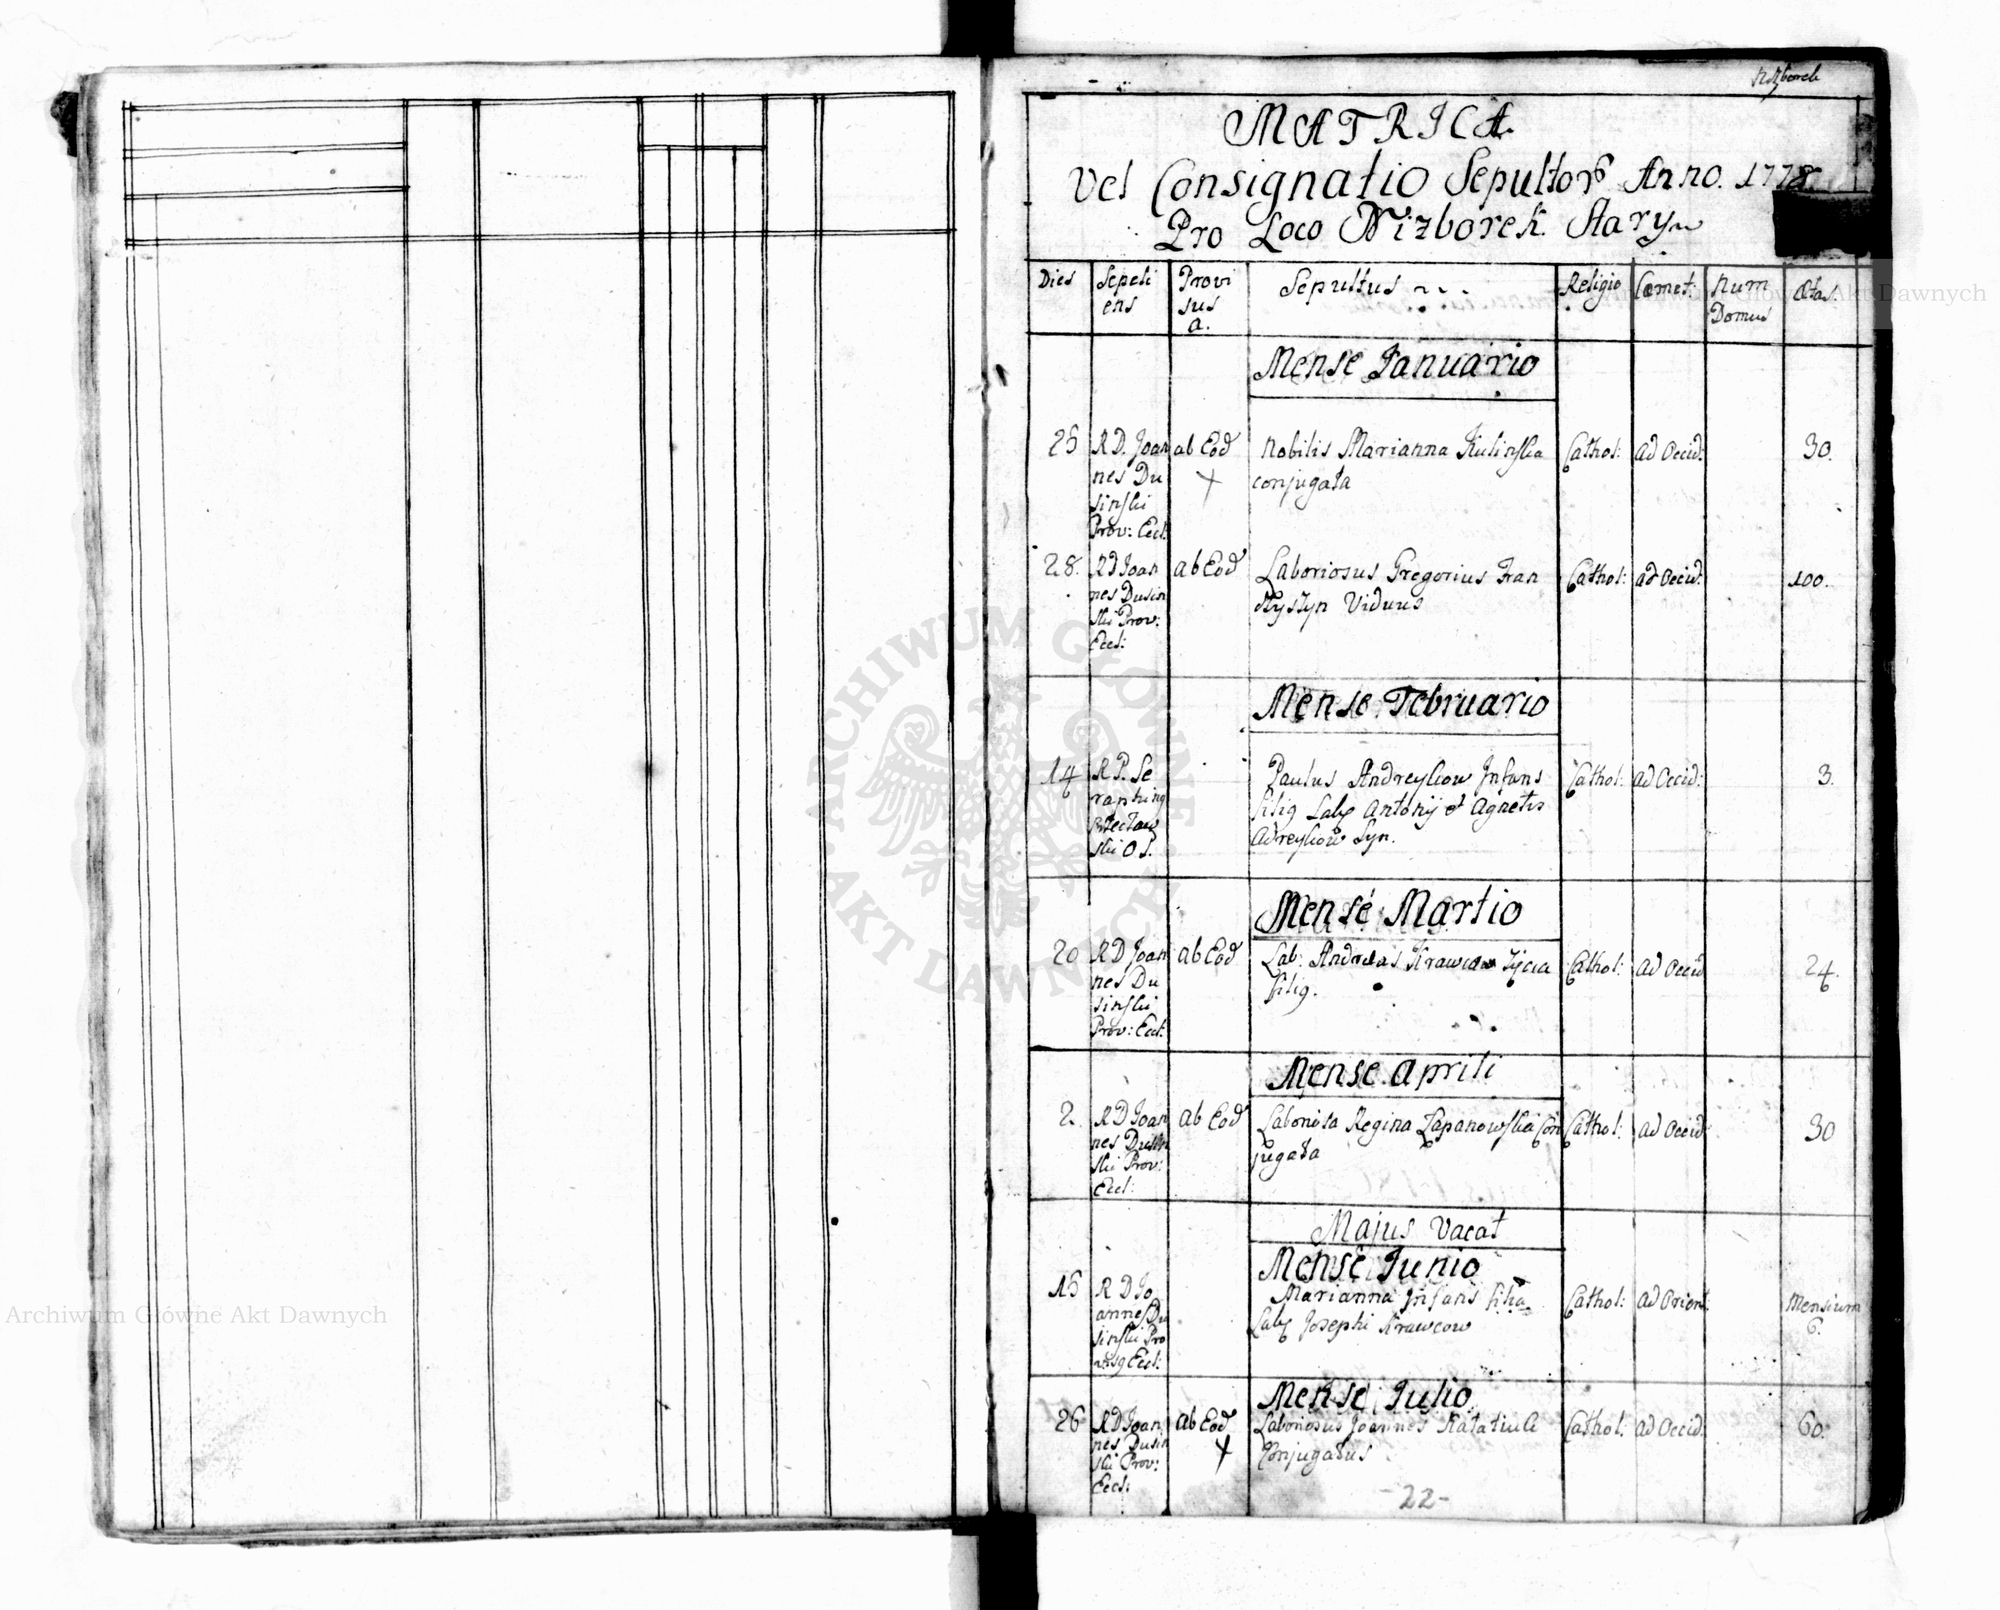 Nizborek
MATRICA
vel Consignatio Sepultor Anno. 1778.
Pro Loco Nizborek Stary
Dies
Sepeli
ens
Provi
sus
a.
Sepultus
Religio
Cœmet:
Num
Domus
Ætas.
Mense Januario
25
R D. Joan
nes Du
sinski
Prov: Eccl:
ab Eod
Nobilis Marianna Kulinska
conjugata
Cathol:
ad Occid.
30.
28.
RD Joan
nes Dusin
ski Prov:
Eccl:
ab Eod
Laboriosus Gregorius Fran
Viduus
Cathol:
ad Occid:
100.
Mense Februario
14
R P. Se
raphinq
ski O S.
Paulus Andreykow Infans
filiq Lab Antonij et Agnetis
Adreykow Syn.
Cathol:
ad Occid:
3.
Mense Martio
20
R D Joan
nes Du
sinski
Prov: Eccl:
ab Eod
Lab: Andreas Krawcow
filiq.
Cathol:
ad Occid
24.
Mense Aprili
2.
R D Joan
nes Dusin
ski Prov:
Eccl:
ab Eod
Laboriosa Regina Łapanowska Con
jugata
Cathol:
ad Occid
30
Majus Vacat
Mense Junio
15
R D Jo
annes Du
sinski Pro
Eccl:
Marianna Infans filia
Lab Josephi Krawcow
Cathol:
ad Orient:
Mensium
6.
Mense Julio
26
RD Joan
nes Dusin
ski Prov:
Eccl:
ab Eod
Laboriosus Joannes
Conjugatus
Cathol:
ad Occid:
60.
-22-
ARCHIWUM GŁÓWNE AKT DAWNYCH
Archiwum Główne Akt Dawnych
Archiwum Główne Akt Dawnych